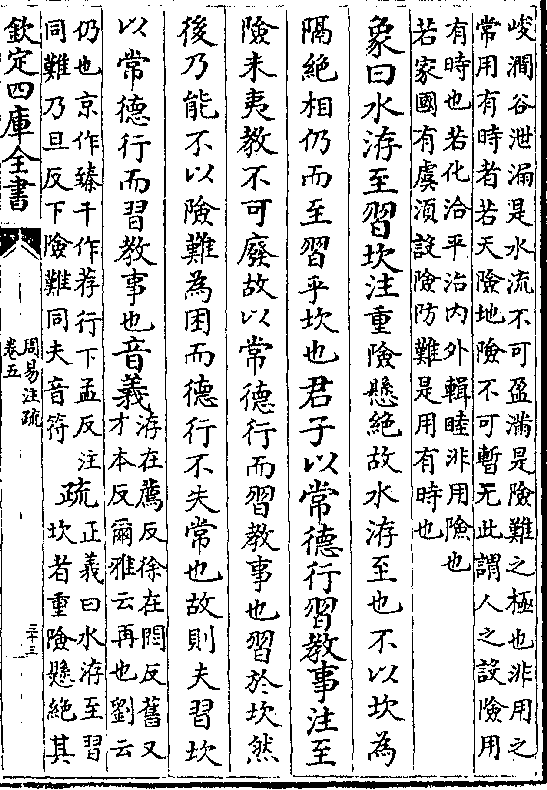 峻澗谷泄漏是水流不可盈滿是險難之極也非用之
常用有時者若天險地險不可暫无此謂人之設險用
有時也若化洽平治内外輯睦非用險也
若家國有虞須設險防難是用有時也
象曰水洊至習坎注重險懸絶故水洊至也不以坎為
隔絶相仍而至習乎坎也君子以常德行習教事注至
險未夷教不可廢故以常德行而習教事也習於坎然
後乃能不以險難為困而德行不失常也故則夫習坎
以常德行而習教事也音義
洊在薦反徐在悶反舊又
才本反爾雅云再也劉云
仍也京作臻干作荐行下孟反注
同難乃旦反下險難同夫音符
疏
正義曰水洊至習
坎者重險懸絶其
欽定四庫全書
周易注疏
卷五
三十三